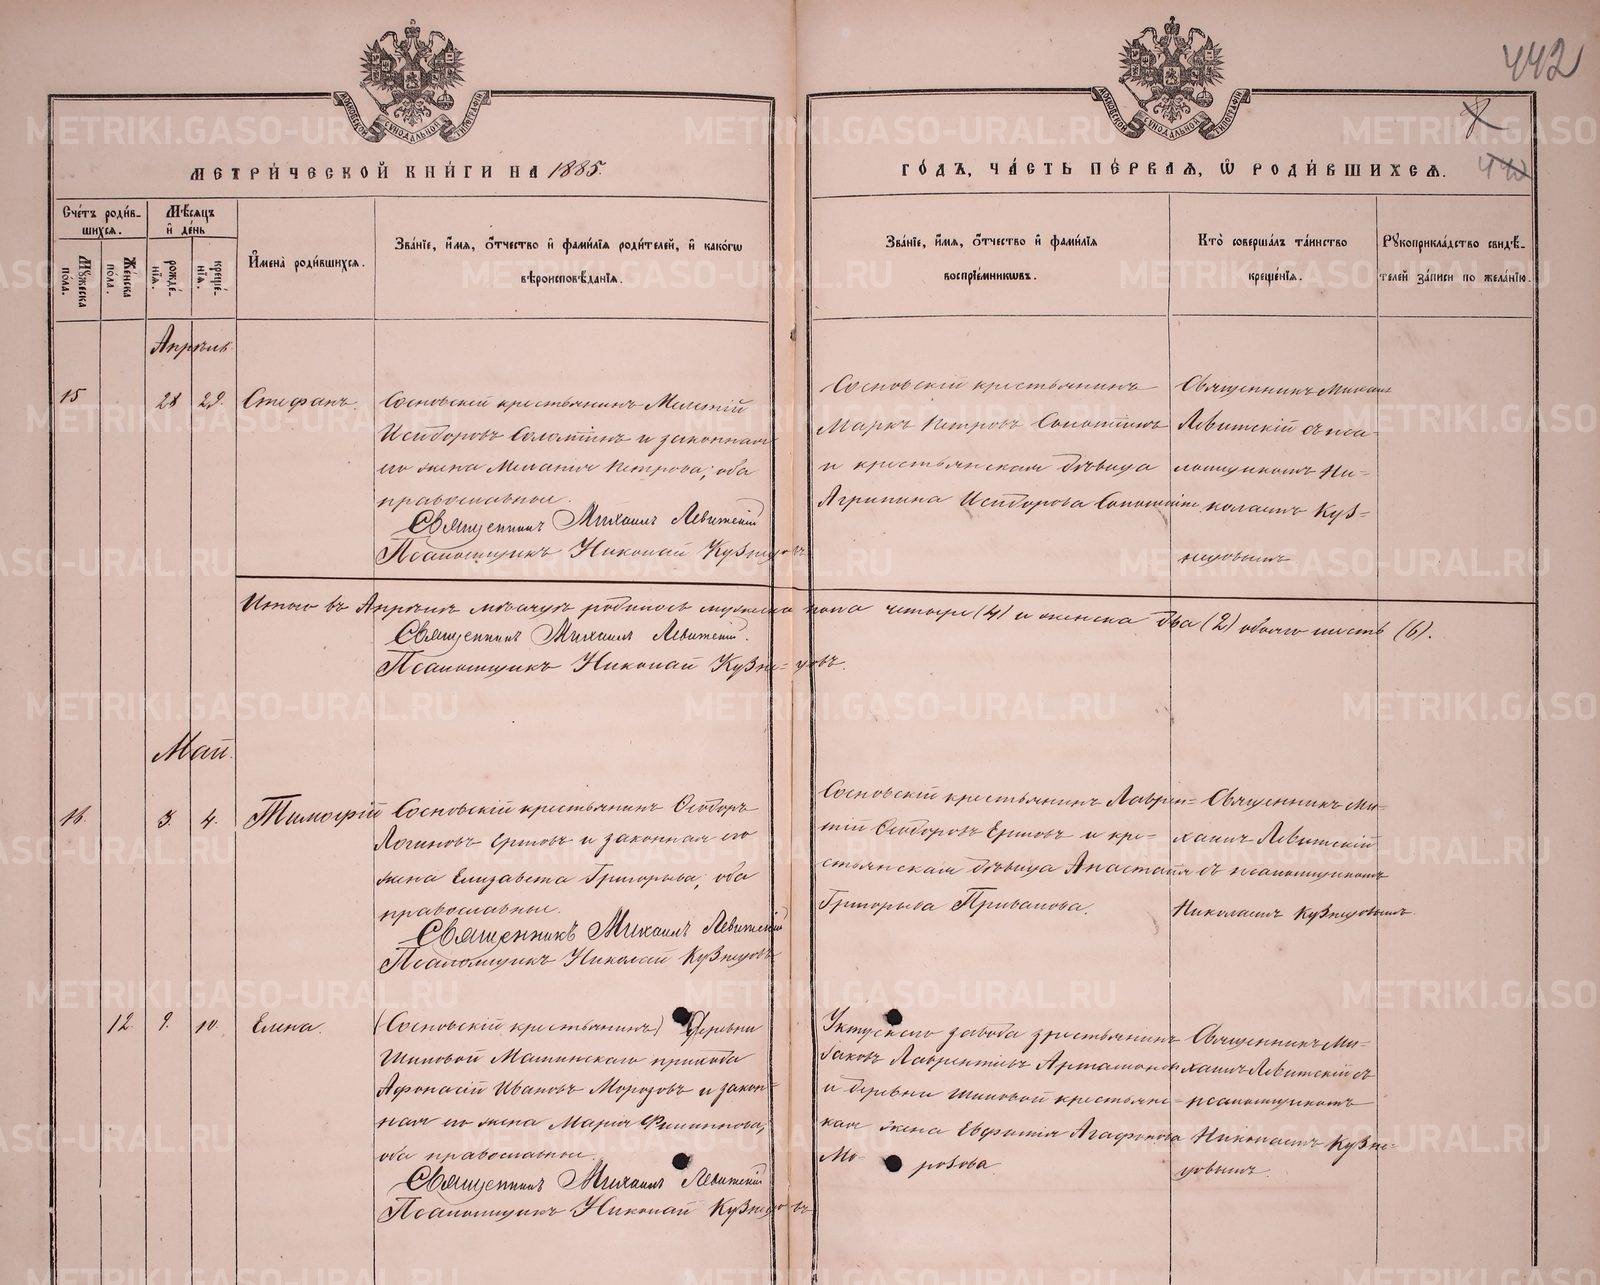 442
МОСКОВСКОЙ СУНОДАЛЬНОЙ ТИПОГРАФІИ
МОСКОВСКОЙ СУНОДАЛЬНОЙ ТИПОГРАФІИ
МЕТРИ́ЧЕСКОЙ КНИ́ГИ НА 1885.
ГО́ДЪ, ЧА́СТЬ ПЕ́РВАѦ, Ѽ РОДИ́ВШИХСѦ.
Сче́тъ роди́в-
шихсѧ.
Мѣ́сѧцъ
и҆ де́нь
Мꙋ́жеска по́ла.
Же́нска по́ла.
рожде́-нїѧ.
креще́-нїѧ.
И҆мена̀ роди́вшихсѧ.
Зва́нїе, и҆́мѧ, ѻ҆́тчество и҆ фами́лїѧ роди́телей, и҆ како́гѡ
вѣроисповѣ́данїѧ.
Зва́нїе, и҆́мѧ, ѻ҆́тчество и҆ фами́лїѧ
воспрїе́мникѡвъ.
Кто̀ соверша́лъ та́инство
креще́нїѧ.
Рꙋкоприкла́дство свидѣ́-
телей за́писи по жела́нїю.
Апрѣль
15 28 29. Стефанъ.
Сосновскій крестьянинъ Мелетій
Исидоровъ Соломѣинъ и законная
его жена Меланія Петрова; оба
православные.
Священникъ Михаилъ Левитскій
Псаломщикъ Николай Кузнецовъ
Сосновскій крестьянинъ
Маркъ Петровъ
и крестьянская дѣвица
Агрипина Исидорова
Священникъ Михаилъ
Левитскій съ пса-
ломщикомъ Ни-
колаемъ Куз-
нецовымъ
Итого въ Апрѣлѣ мѣсяцѣ родилось мужеска пола четыре (4) и женска два (2) обоего шесть (6).
Священникъ Михаилъ Левитскій.
Псаломщикъ Николай Кузне=цовъ.
Май.
16. 3. 4. Тимофей
Сосновскій крестьянинъ Ѳеодоръ
Логиновъ Ершовъ и законная его
жена Елизавета Григорьева; оба
православные.
Священникъ Михаилъ Левитскій
Псаломщикъ Николай Кузнецовъ
Сосновскій крестьянинъ Лаврен=
тій Ѳеодоровъ Ершовъ и кре=
стьянская дѣвица Анастасія
Григорьева Привалова.
Священникъ Ми=
хаилъ Левитскій
съ псаломщикомъ
Николаемъ Кузнецовымъ.
12. 9. 10. Елена.
(Сосновскій крестьянинъ) Деревни
Шиловой Маминскаго прихода
Афонасій Ивановъ Морозовъ и закон=
ная его жена Марія Филиппова;
оба православные.
Священникъ Михаилъ Левитскій
Псаломщикъ Николай Кузнецовъ
Уктускаго завода крестьянинъ
Іаковъ Лаврентіевъ Артамоновъ
и деревни Шиловой крестьянс=
кая жена Евфимія Агафонова
Мо- розова.
Священникъ Ми=
хаилъ Левитскій съ
псаломщикомъ
Николаемъ Кузне=
цовымъ.
METRIKI.GASO-URAL.RU